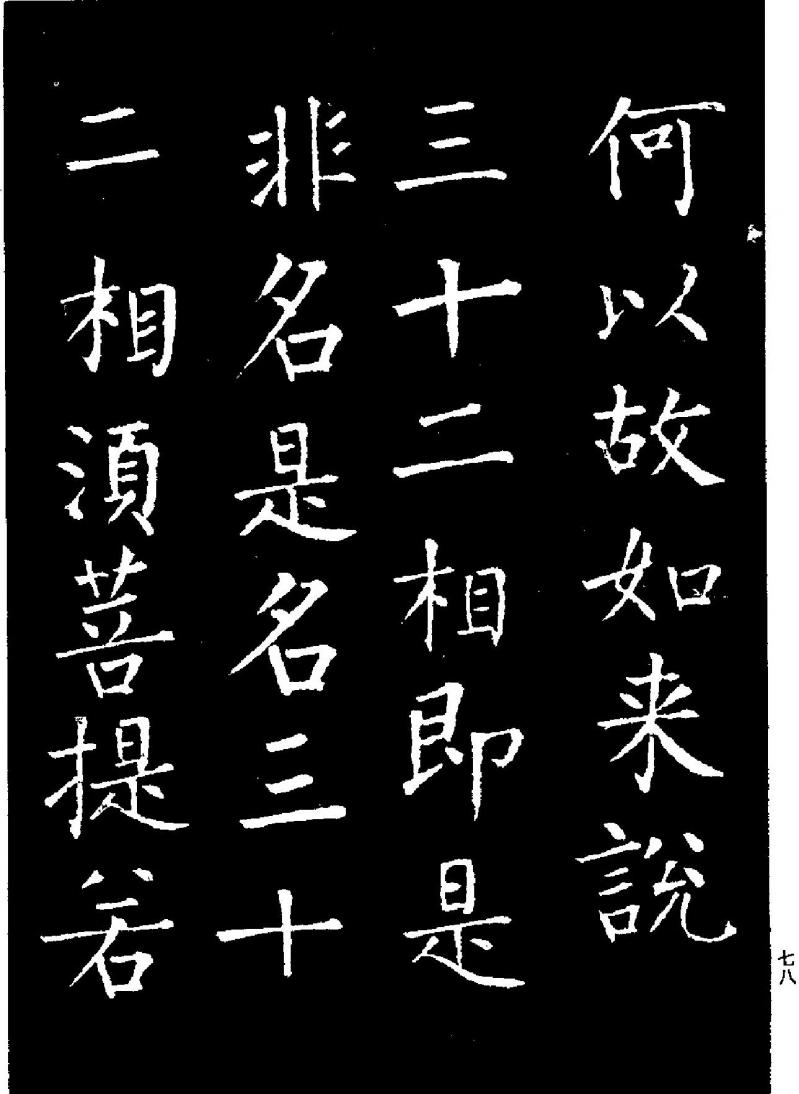 何以故如来說
三十二相即是
非名是名三十
二相湏菩提若
七八